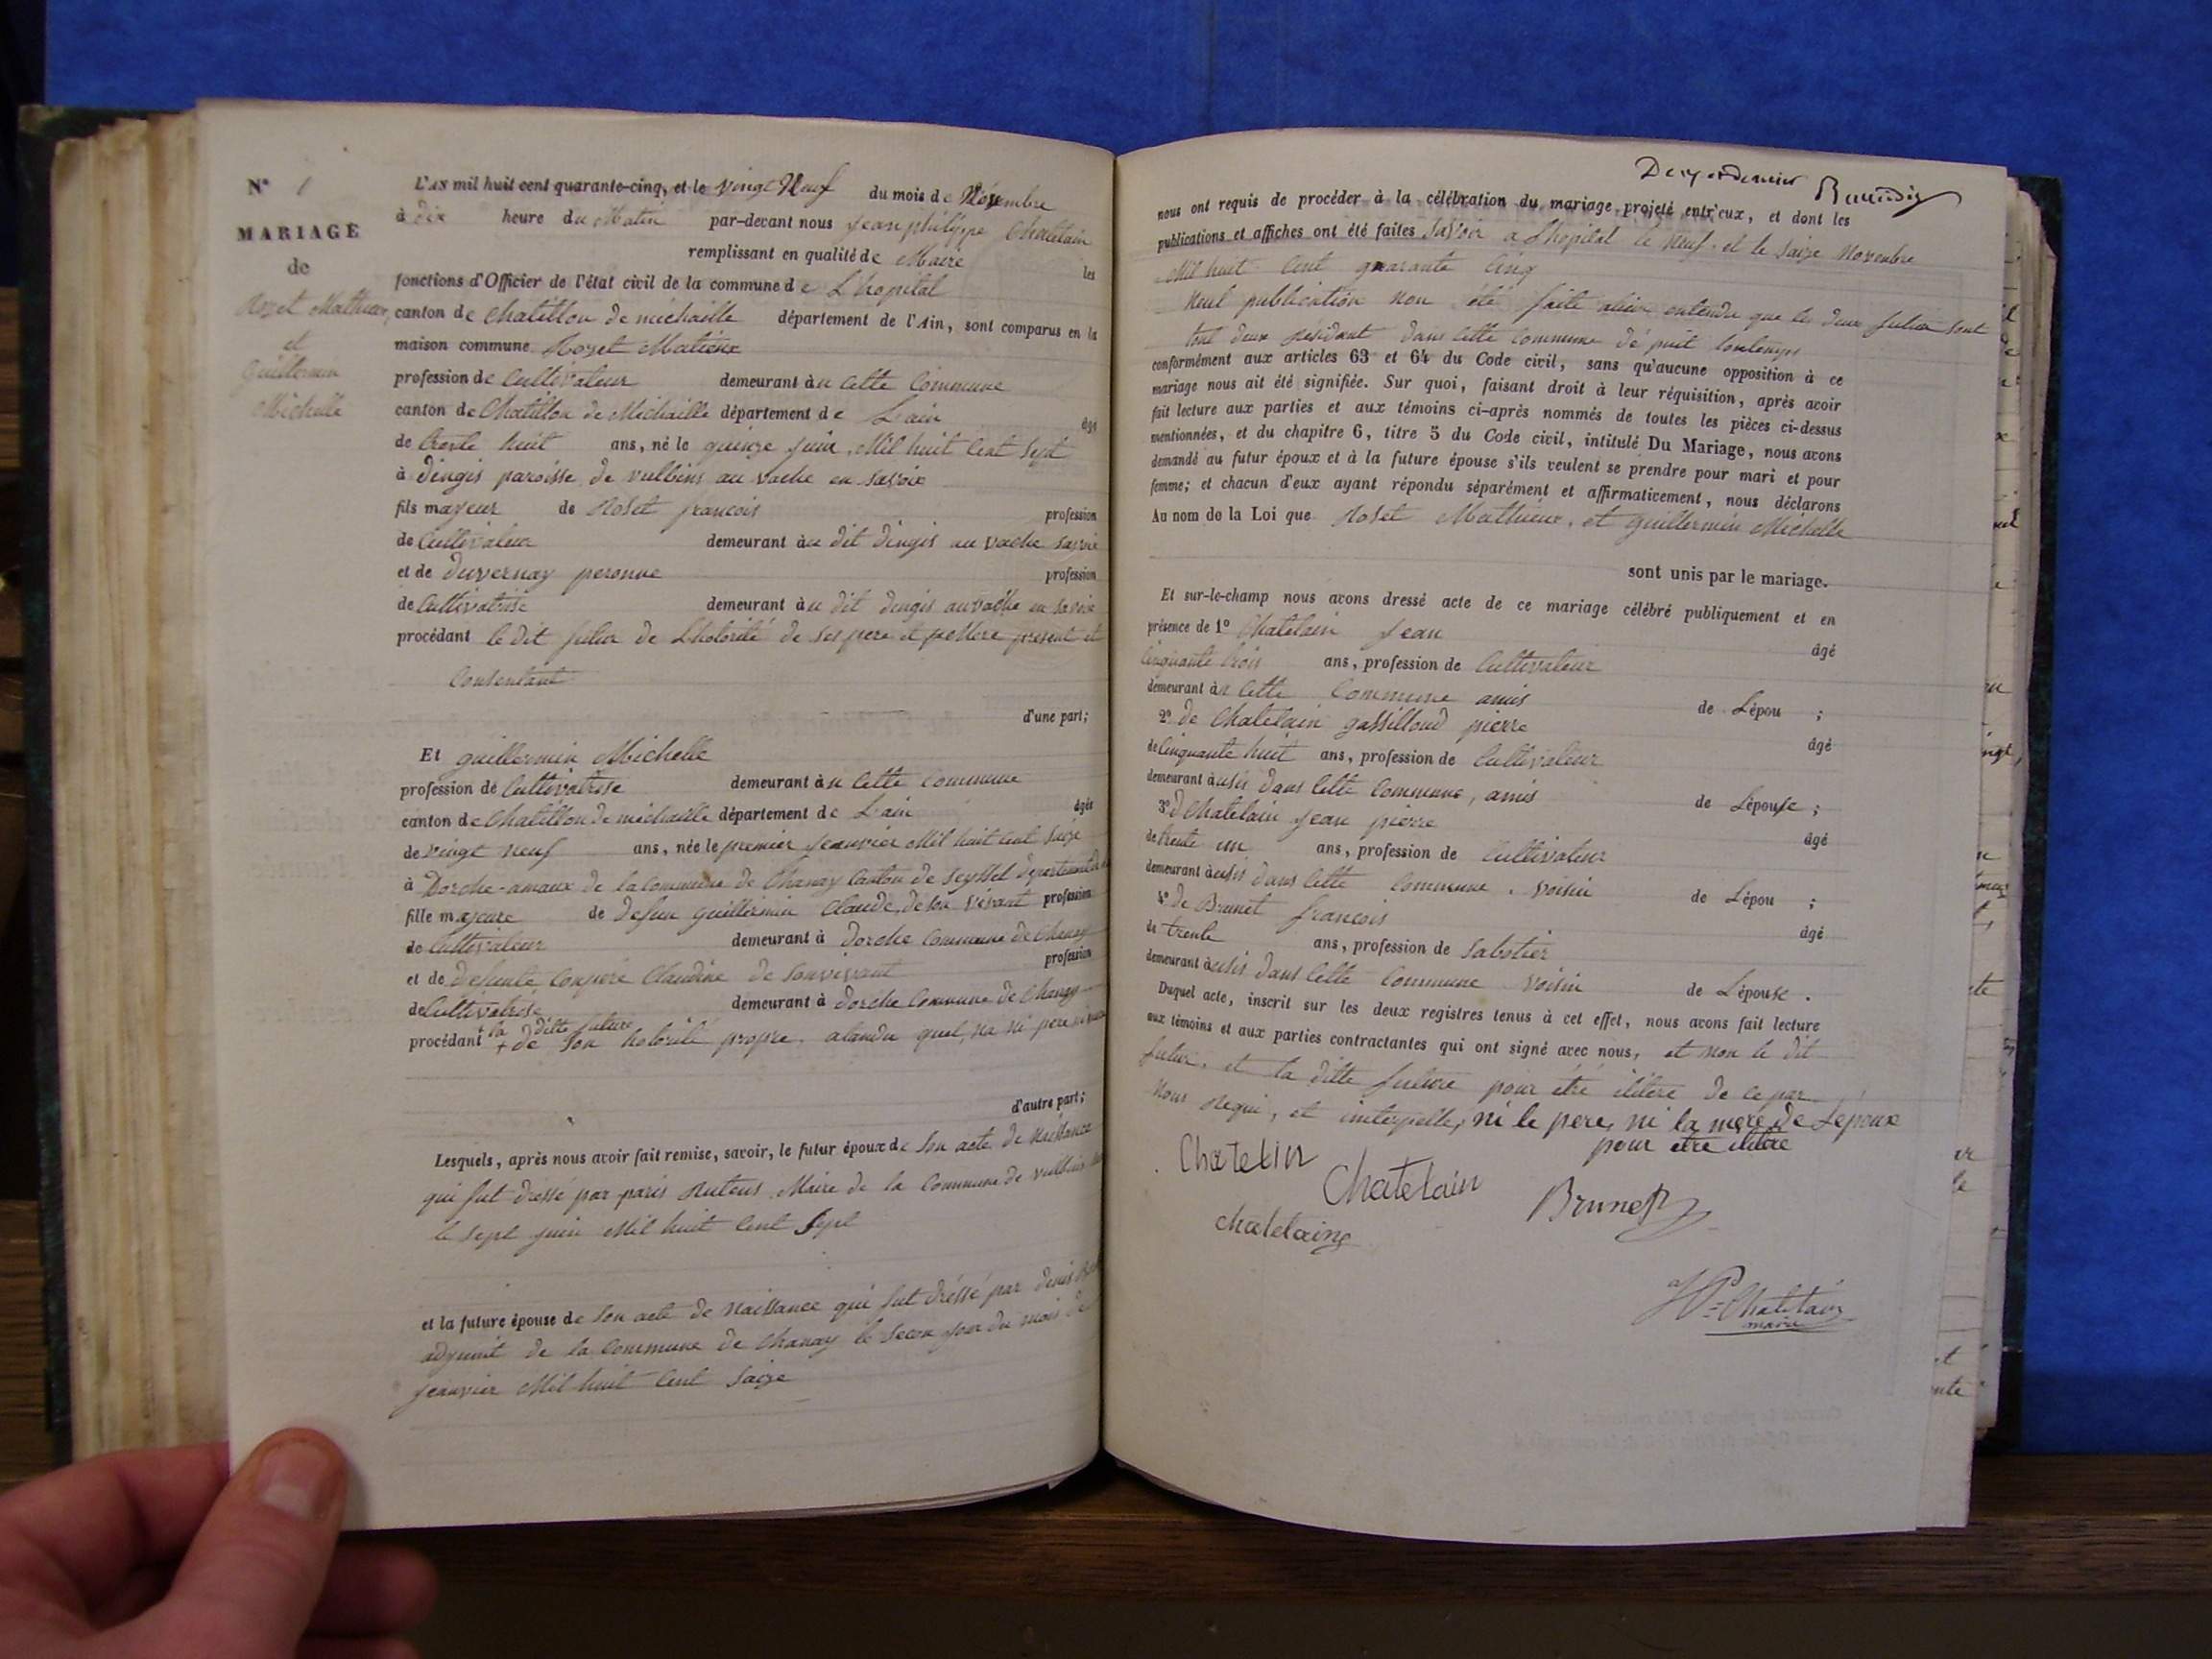 N° 1
MARIAGE
de
Rozet Mathieu,
et
Guillermin
Michelle
L'AN mil huit cent quarante-cinq, et le vingt Neuf du mois de Novembre
à dix heure du Matin par-devant nous jean philippe Chatelain
remplissant en qualité de Maire les
fonctions d'Officier de l'état civil de la commune de L'hopital
canton de Chatillon de michaille département de l'Ain, sont comparus en la
maison commune Rozet Matieux
profession de Cultivateur demeurant àn cette Commune
canton de Chatillon de Michaille département de Lain âgé
de trente huit ans, né le quinze juin Mil huit Cent Sept
à dingis paroisse de vulbins au vache en savoix
fils mayeur de Roset francois profession
de Cultivateur demeurant àu dit dingis au vache savoie
et de duvernay peronne profession
de Cultivatrise demeurant àu dit dingis au vache en savoie
procédant le dit futur de Lhotorité de ses pere et mere present et
Consentant
d'une part;
Et guillermin Michelle
profession de Cultivatrise demeurant àn cette Commune
canton de Chatillon de michaille département de Lain âgée
de vingt neuf ans, née le premier jeanvier Mil huit cent Saize
à Dorche-amaux de la Commune de Chanay Canton de Seyssel departement
fille majeure de defun guillermin Claude, de son vivant profession
de Cultivateur demeurant à dorche Commune de Chanay
et de defunte Conpere Claudine de son vivant profession
de Cultivatrise demeurant à dorche Commune de Chanay
+ la ditte future
procédant + de son hotorité propre. atandu quel na ni pere ni
d'autre part;
Lesquels, après nous avoir fait remise, savoir, le futur époux de son acte de Naissance
qui fut dressé par paris Maire de la Commune de vulbins
le sept juin Mil huit Cent Sept
et la future épouse de son acte de naissance qui fut dréssé par denis
adjoint de la Commune de Chanay le secon jour du mois de
jeanvier Mil huit Cent Saize
nous ont requis de procéder à la célébration du mariage projeté entr'eux, et dont les
publications et affiches ont été faites Savoir a Lhopital le Neuf et le Saize Novembre
Mil huit Cent quarante Cinq
Neul publication non été faite alieur entendu que les deux futur sont
tout deux résidant dans cette Commune dé puit lontemps
conformément aux articles 63 et 64 du Code civil, sans qu'aucune opposition à ce
mariage nous ait été signifiée. Sur quoi, faisant droit à leur réquisition, après avoir
fait lecture aux parties et aux témoins ci-après nommés de toutes les pièces ci-dessus
mentionnées, et du chapitre 6, titre 5 du Code civil, intitulé Du Mariage, nous avons
demandé au futur époux et à la future épouse s'ils veulent se prendre pour mari et pour
femme; et chacun d'eux ayant répondu séparément et affirmativement, nous déclarons
Au nom de la Loi que Roset Mathieux, et guillermin Michelle
sont unis par le mariage.
Et sur-le-champ nous avons dressé acte de ce mariage célébré publiquement et en
présence de 1° Chatelain jean âgé
cinquante trois ans, profession de Cultivateur
demeurant àn cette Commune amis de Lépou ;
2° de Chatelain gassilloud pierre âgé
de cinquante huit ans, profession de Cultivateur
demeurant àusis dans cette Commune, amis de Lépouse ;
3° d Chatelain jean pierre âgé
de trente un ans, profession de Cultivateur
demeurant àusis dans cette Commune. voisin de Lépou ;
4° de Brunet francois âgé
de trente ans, profession de Sabotier
demeurant àusis dans cette Commune voisin de Lépouse .
Duquel acte, inscrit sur les deux registres tenus à cet effet, nous avons fait lecture
aux témoins et aux parties contractantes qui ont signé avec nous, et non le dit
futur, et la ditte future pour étre ilitere de ce par
Nous requi, et interpelle, ni le pere, ni la mere de Lépoux
pour etre ilitere
Chatelin
Chatelain
Brunet
chatelaing
JP=Chatelain
maire